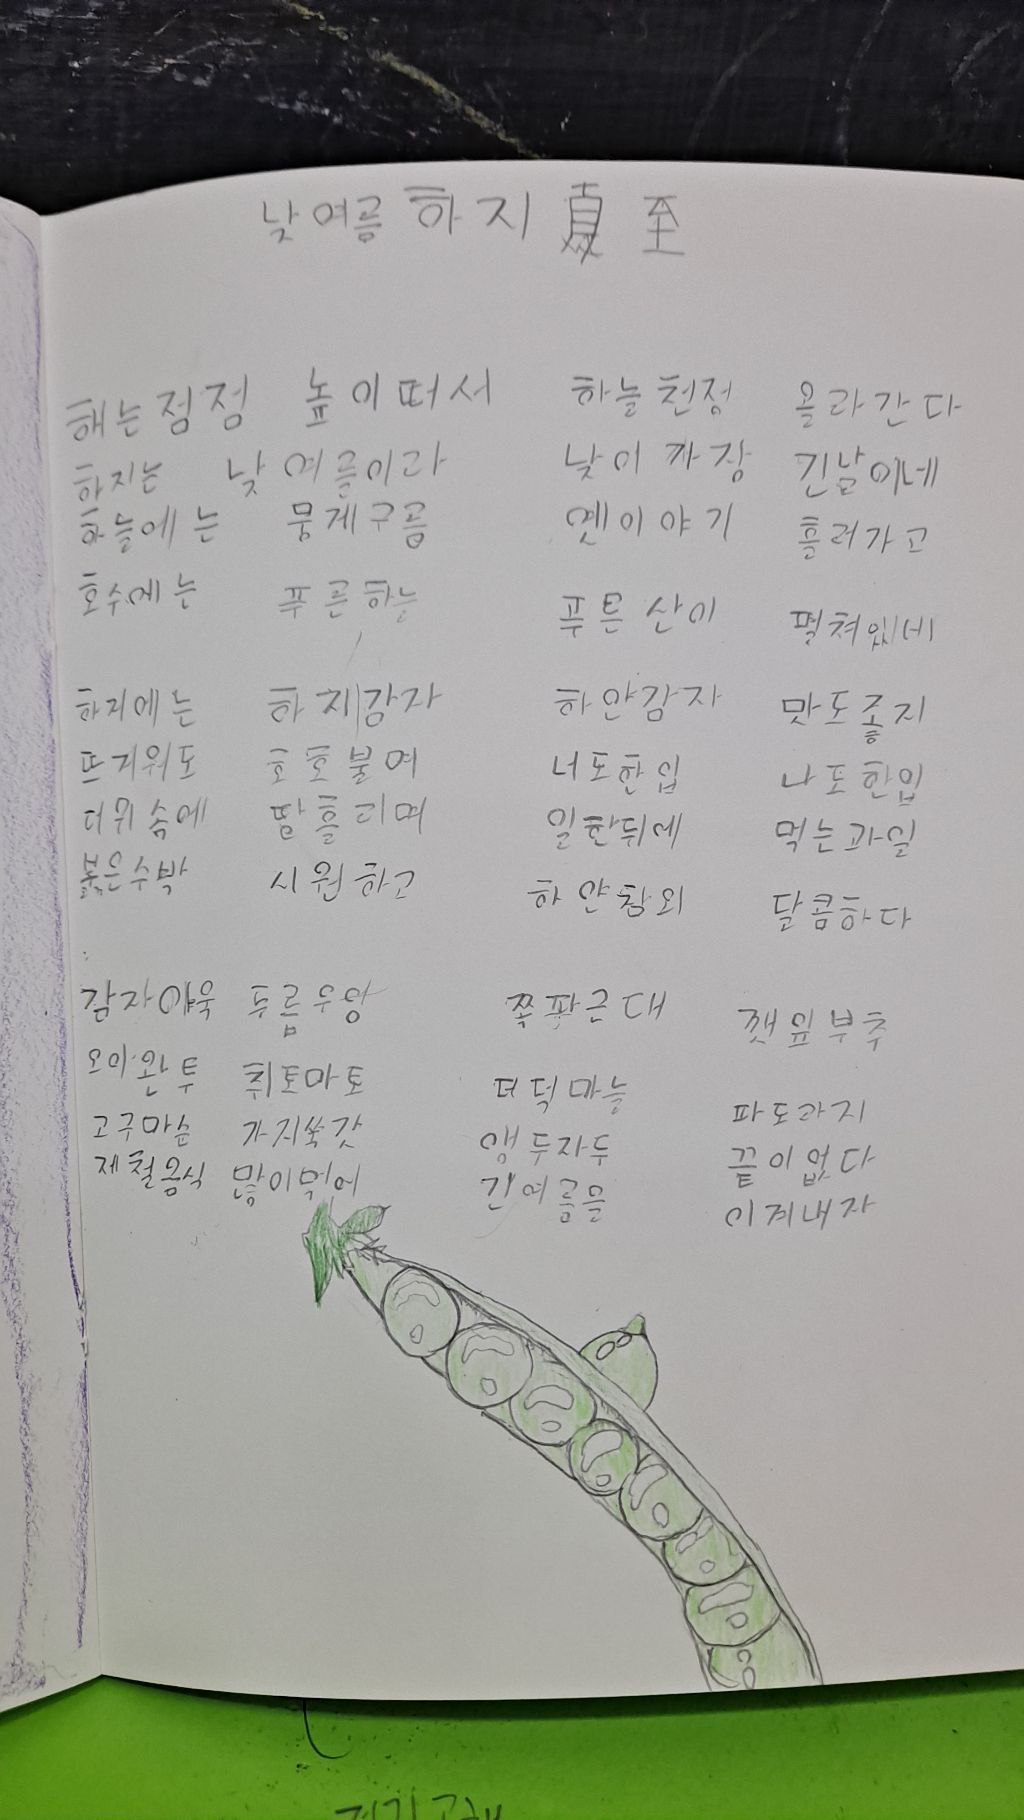 낮여름 하지 夏至
해는점점 높이떠서 하늘천정 올라간다
하지는 낮여름이라 낮이 가장 긴날이네
하늘에는 뭉게구름 옛이야기 흘러가고
호수에는 푸른하늘 푸른산이 펼쳐있네
하지에는 하지감자 하얀감자 맛도좋지
뜨거워도 호호불며 너도한입 나도한입
더위속에 땀흘리며 일한뒤에 먹는과일
붉은수박 시원하고 하얀참외 달콤하다
감자아욱 두릅우엉 쪽파근대 깻잎부추
오이완두 취토마토 더덕마늘 파도라지
고구마순 가지쑥갓 앵두자두 끝이없다
제철음식 많이먹어 긴여름을 이겨내자